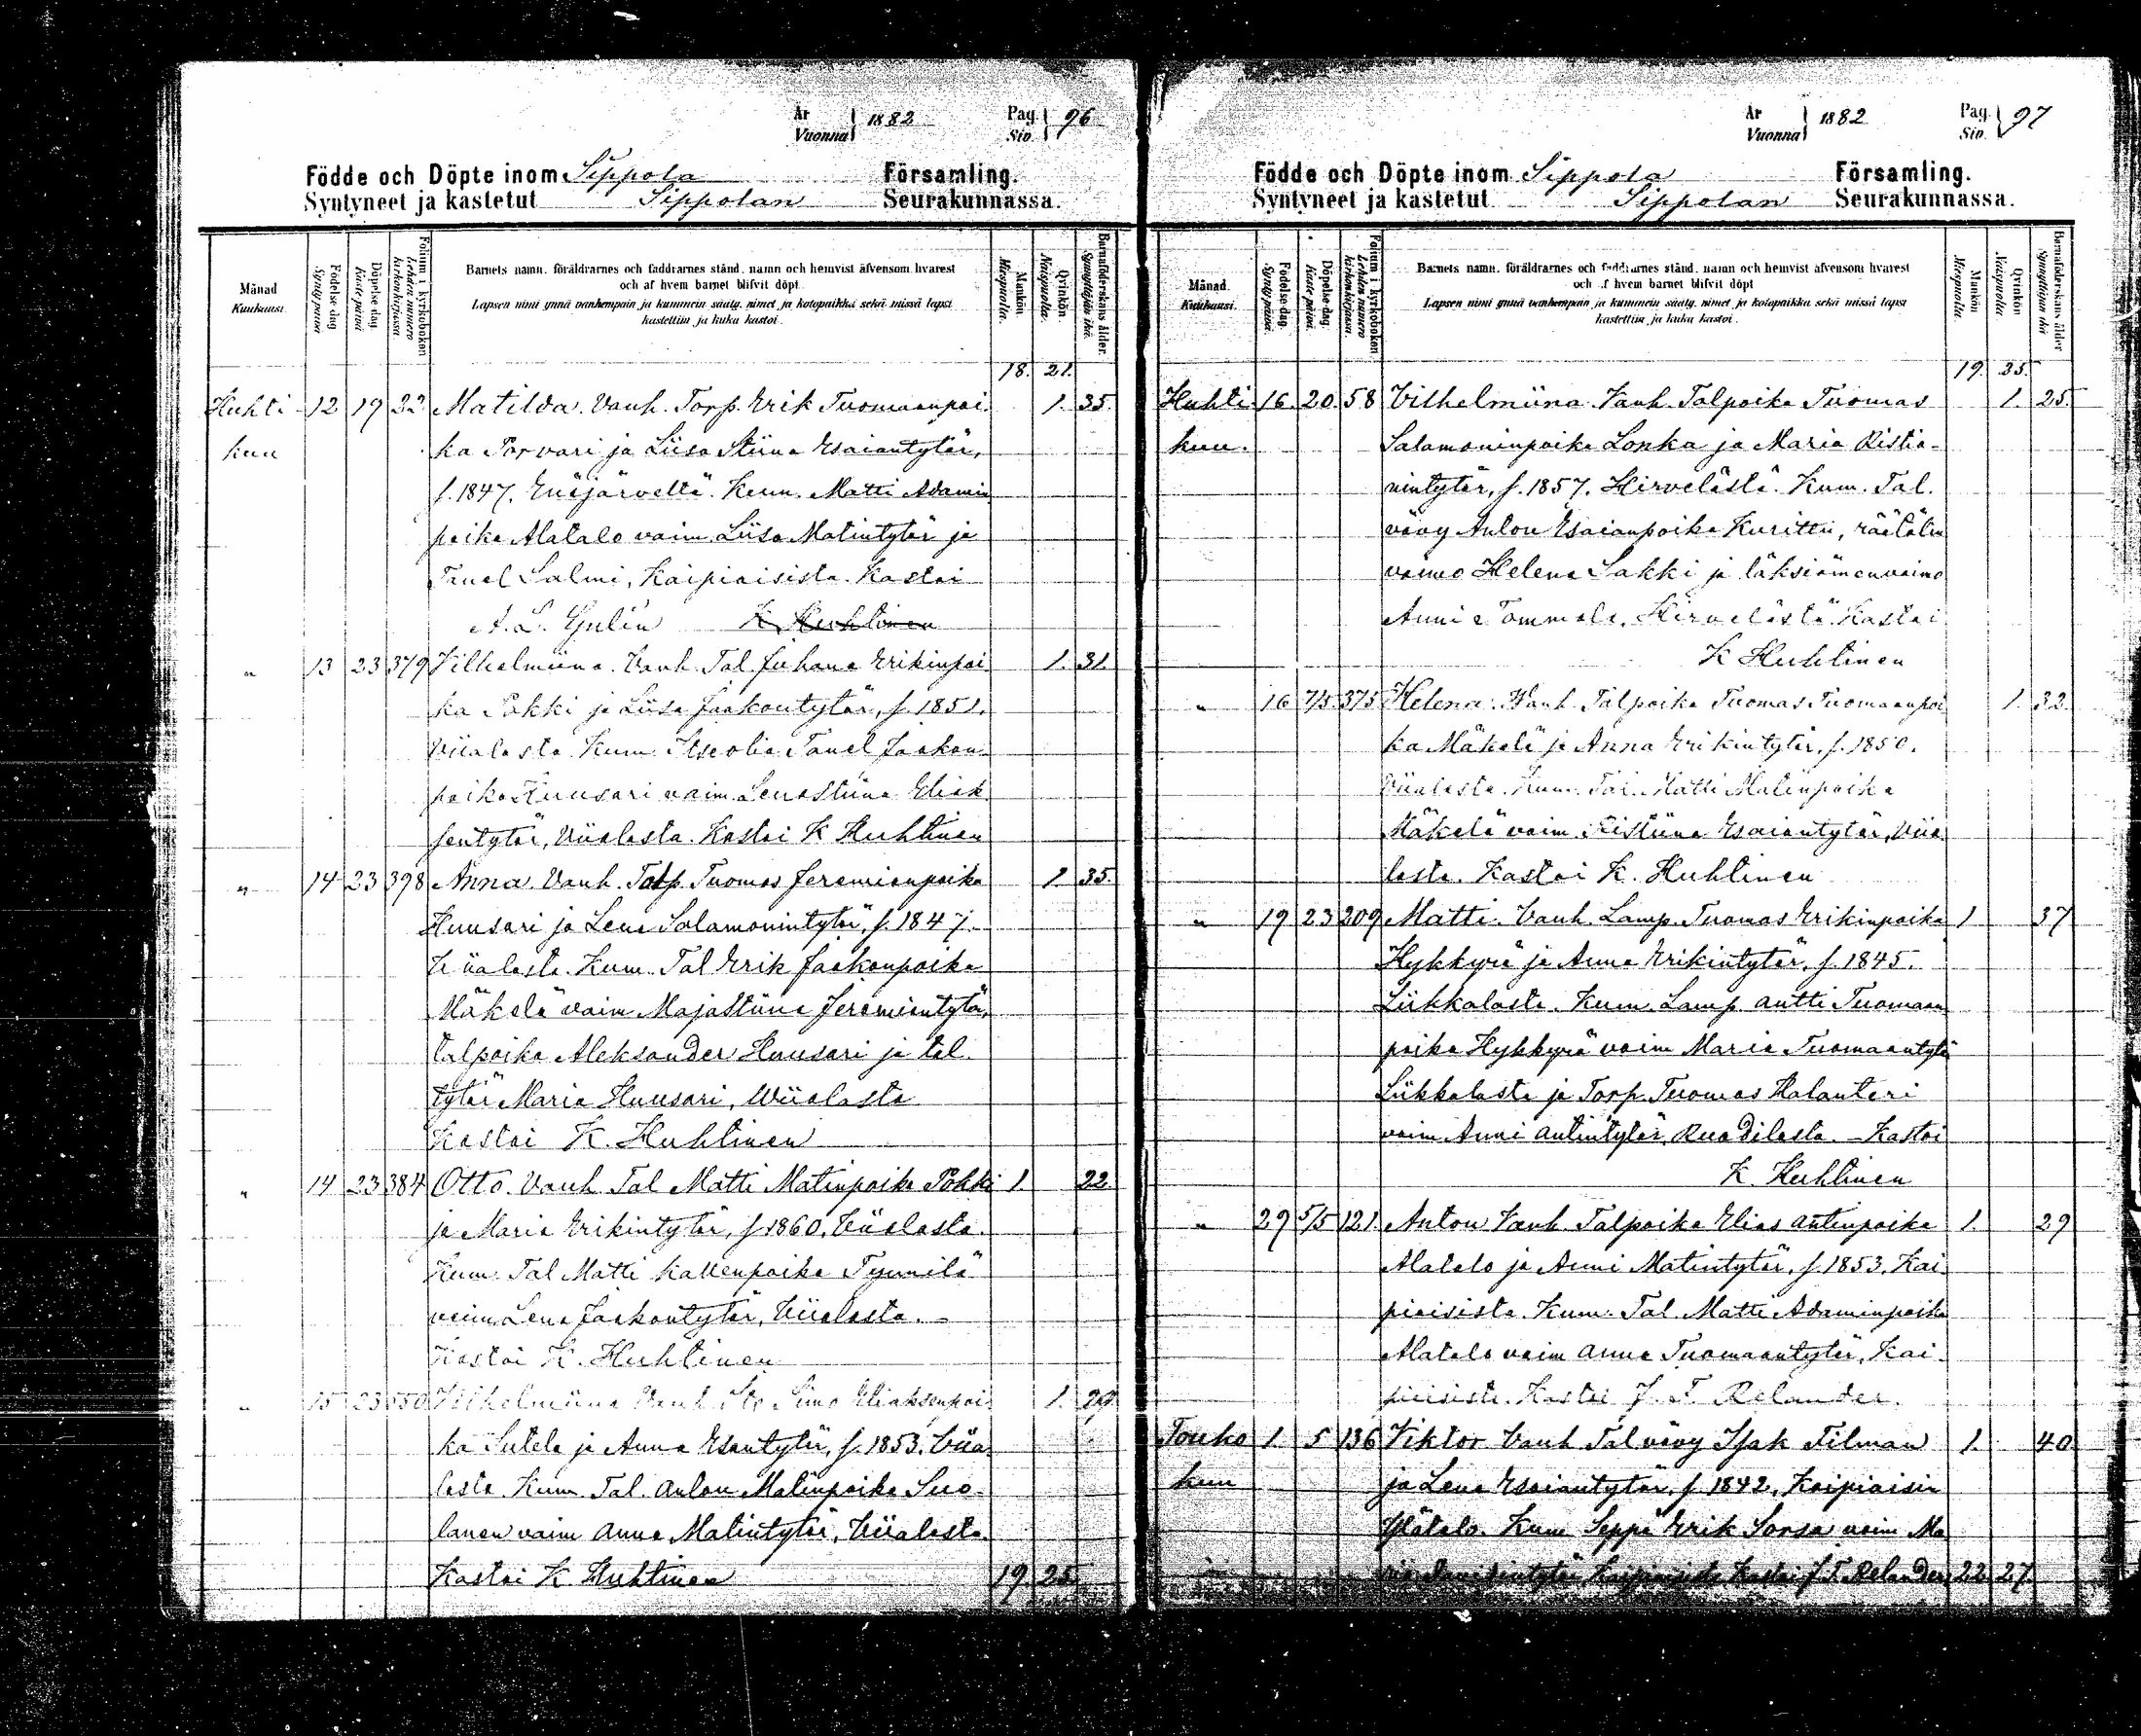 År
Vuonna 1882 Pag. Siv. 96
Födde och Döpte inom Sippola Församling.
Syntyneet ja kastetut Sippolan Seurakunnassa.
Månad Kuukausi.
Födelse-dag Synty päivä
Döpelse-dag Kaste päivä
Folium i kyrkoboken Lehden numero kirkonkirjassa.
Barnets namn, föräldrarnes och faddrarnes stånd, namn och hemvist äfvensom hvarest
och af hvem barnet blifvit döpt
Lapsen nimi ynnä vanhempain ja kummein sääty, nimet ja kotopaikka sekä missä lapsi
kastettiin ja kuka kastoi.
Mankön Miespuolia.
Qvinkön. Naispuolia.
Barnaföderskans ålder. Synnyttäjän ikä.
18. 21.
Huhti 12 19 22 Matilda. Vanh. Torp. Erik Tuomaanpoi- 1. 35.
kuu ka Porvari ja Liisa Stiina Esaiantytär,
f. 1847. Enäjärveltä. Kum. Matti Adamin
poika Alatalo vaim. Liisa Matintytär ja
Tanel Salmi, Kaipiaisista. Kastoi
A. L. Gulin K. Huhtinen
" 13 23 379 Vilhelmiina. Vanh. Tal. Juhana Erikinpoi- 1. 31.
ka Pökki ja Liisa Jaakontytär, f. 1851.
Viialasta. Kum. Itseoll. Tanel Jaakon
poika Huusari vaim. Lenastiina Eliak
sentytär, Viialasta. Kastoi K Huhtinen
" 14 23 398 Anna. Vanh. Talp. Tuomas Jeremianpoika 1. 35.
Huusari ja Lena Salamonintytär, f. 1847.
Viialasta. Kum. Tal Erik Jaakonpoika
Mäkelä vaim Majastiina Jeremiantytär,
talpoika Aleksander Huusari ja tal.
tytär Maria Huusari, Wiialasta
Kastoi K. Huhtinen
" 14 23 384 Otto. Vanh Tal Matti Matinpoika Pökki 1. 22.
ja Maria Erikintytär, f 1860, Viialasta.
Kum. Tal Matti Kallenpoika Tynnilä
vaim Lena Jaakontytär, Viialasta.
Kastoi K. Huhtinen
" 15 23 550 Vilhelmiina Vanh. Simo Eliaksenpoi- 1. 29.
ka Sutela ja Anna Esantytär, f. 1853. Viia
lasta. Kum. Tal. Anton Matinpoika Suo-
lanen vaim Anna Matintytär, Viialasta.
Kastoi K Huhtinen 19 25
År
Vuonna 1882 Pag. Siv. 97
Födde och Döpte inom Sippola Församling.
Syntyneet ja kastetut Sippolan Seurakunnassa.
Månad. Kuukausi.
Födelse-dag. Synty päivä.
Döpelse-dag. Kaste päivä.
Folium i kyrkoboken Lehden numero kirkonkirjassa.
Barnets namn, föräldrarnes och faddrarnes stånd, namn och hemvist äfvensom hvarest
och af hvem barnet blifvit döpt
Lapsen nimi ynnä vanhempain ja kummein sääty, nimet ja kotopaikka sekä missä lapsi
kastettiin ja kuka kastoi.
Mankön Miespuolia.
Qvinkön Naispuolia.
Barnaföderskans ålder Synnyttäjän ikä
19. 25.
Huhti 16. 20. 58 Vilhelmiina. Vanh. Talpoika Tuomas 1. 25.
kuu. Salamoninpoika Lonka ja Maria Ristia-
nintytär, f. 1857. Hirvelästä. Kum. Tal.
vävy Anton Esaianpoika Kurittu, räätälin
vaimo Helena Sakki ja läksiämenvaimo
Anni Tommola, Hirvelästä. Kastoi
K Huhtinen
" 16 7/5 375 Helena. Vanh Talpoika Tuomas Tuomaanpoi 1. 32.
ka Mäkelä ja Anna Erikintytär, f. 1850.
Viialasta. Kum. Tal. Matti Matinpoika
Mäkelä vaim. Ristiina Esaiantytär, Viia
lasta. Kastoi K. Huhtinen
" 19 23 209 Matti. Vanh. Lamp. Tuomas Erikinpoika 1 37
Hykkyrä ja Anna Erikintytär, f. 1845.
Liikkalasta. Kum. Lamp. Antti Tuomaan
poika Hykkyrä vaim Maria Tuomaantytär
Liikkalasta ja Torp. Tuomas Halanteri
vaim Anni Antintytär, Ruodilasta. Kastoi
K. Huhtinen
" 29 5/5 121. Anton Vanh. Talpoika Elias Antinpoika 1. 29
Alatalo ja Anni Matintytär, f. 1853. Kai-
piaisista. Kum. Tal. Matti Adaminpoika
Alatalo vaim Anna Tuomaantytär, Kai-
piaisista. Kastoi J. F. Relander.
Touko 1. 5 136 Viktor Vanh Tal vävy Isak Filman 1. 40.
kuu ja Lena Esaiantytär, f. 1842, Kaipiaisin
Ylätalo. Kum Seppä Erik Sorsa vaim Ma
Kaipiaisista Kastoi J. F. Relander 22 27